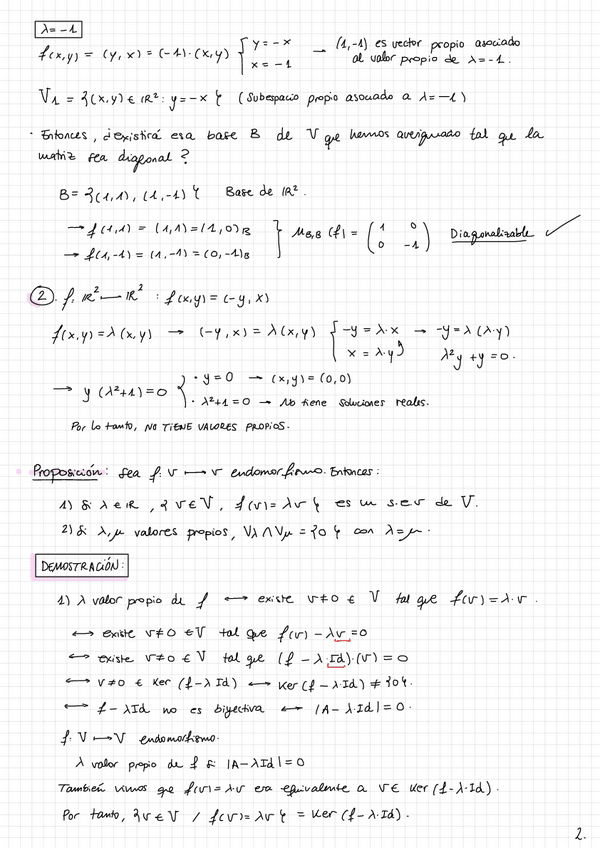 λ = -1
f(x,y) = (y, x) = (-1)·(x,y) { y = -x → (1,-1) es vector propio asociado
x = -1 al valor propio de λ = -1.
V₁ = {(x,y) ∈ ℝ² : y = -x} (Subespacio propio asociado a λ = -1)
· Entonces, ¿existirá esa base B de V que hemos averiguado tal que la
matriz sea diagonal?
B = {(1,1), (1,-1)} Base de ℝ².
→ f(1,1) = (1,1) = (1,0)_B
→ f(1,-1) = (1,-1) = (0,-1)_B } M_{B,B}(f) = ( 1 0 / 0 -1 ) Diagonalizable ✓
② . f: ℝ² → ℝ² : f(x,y) = (-y, x)
f(x,y) = λ(x,y) → (-y, x) = λ(x,y) { -y = λ·x → -y = λ(λ·y)
x = λ·y λ²y + y = 0.
→ y(λ²+1) = 0 { · y = 0 → (x,y) = (0,0)
· λ²+1 = 0 → No tiene soluciones reales.
Por lo tanto, NO TIENE VALORES PROPIOS.
Proposición: Sea f: V ↦ V endomorfismo. Entonces:
1) Si λ ∈ ℝ, {v ∈ V, f(v) = λv} es un s.e.v de V.
2) Si λ, μ valores propios, Vλ ∩ Vμ = {0} con λ = μ.
DEMOSTRACIÓN:
1) λ valor propio de f ↔ existe v ≠ 0 ∈ V tal que f(v) = λ·v.
↔ existe v ≠ 0 ∈ V tal que f(v) - λv = 0
↔ existe v ≠ 0 ∈ V tal que (f - λ·Id)·(v) = 0
↔ v ≠ 0 ∈ Ker(f - λ Id) ↔ Ker(f - λ·Id) ≠ {0}.
↔ f - λId no es biyectiva ↔ |A - λ·Id| = 0.
f: V ↦ V endomorfismo.
λ valor propio de f si |A - λId| = 0
También vimos que f(v) = λv era equivalente a v ∈ Ker(f - λ·Id).
Por tanto, {v ∈ V / f(v) = λv} = Ker(f - λ·Id).
2.